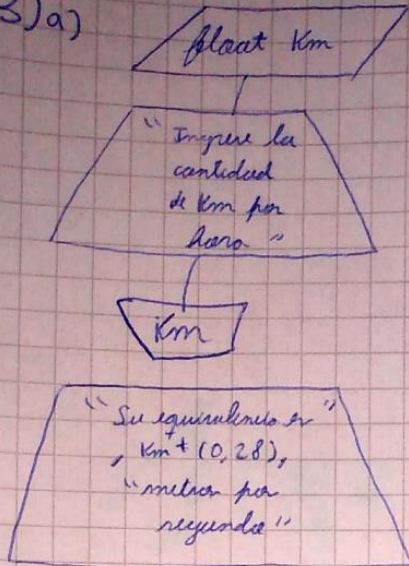 3) a)
float Km
" Ingrese la
cantidad
de Km por
hora "
Km
" Su equivalencia es "
, Km * (0,28),
" metros por
segundo "